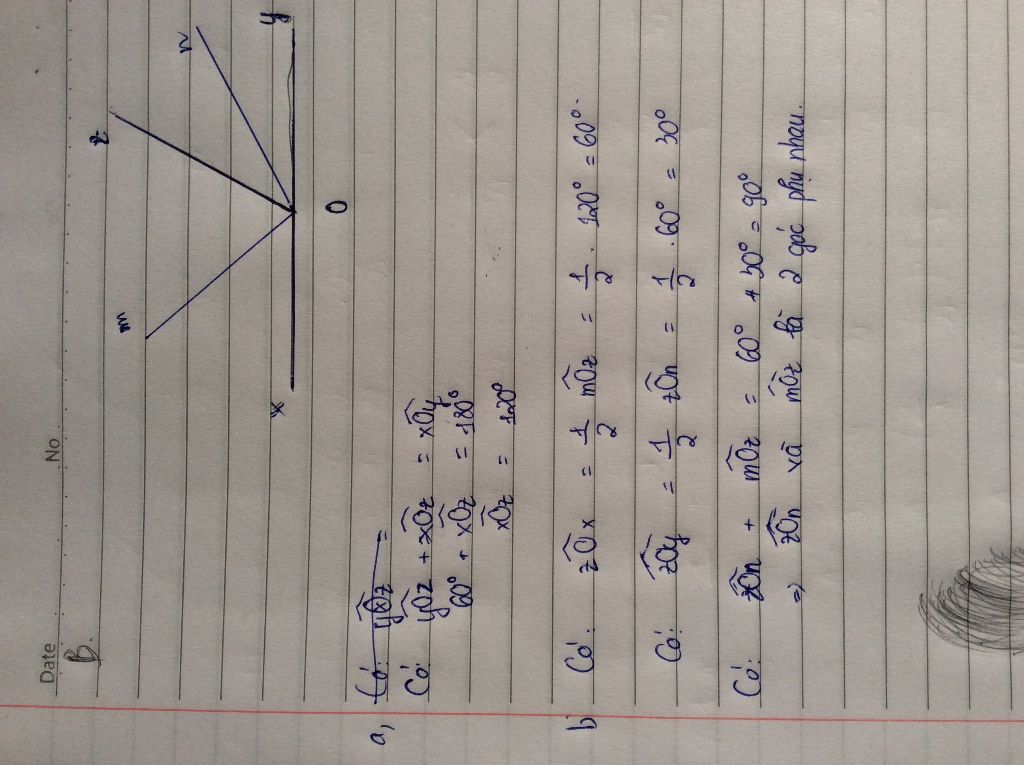 Date No
B.
m z n
x O y
a, Có: yOz =
Có: yOz + xOz = xOy
60° + xOz = 180°
xOz = 120°
b Có: zOx = 1/2 mOz = 1/2 . 120° = 60°.
Có: zOy = 1/2 zOn = 1/2 . 60° = 30°
Có: zOn + mOz = 60° + 30° = 90°
=> zOn và mOz là 2 góc phụ nhau.